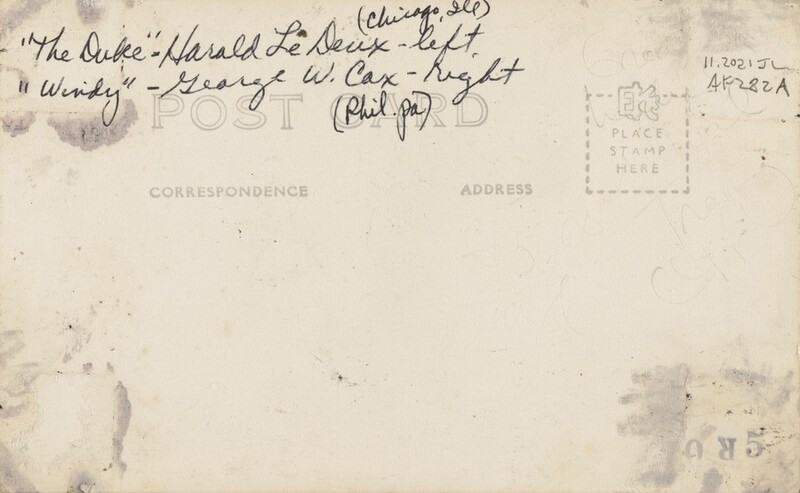 (Chicago, Ill)
"The Duke" - Harald Le Deux - left
"Windy" - George W. Cox - Right
(Phil. Pa)
11.2021 JL
AF282A
POST CARD
EKC
PLACE
STAMP
HERE
CORRESPONDENCE
ADDRESS